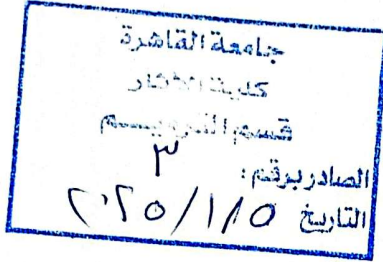 جامعة القاهرة
كلية الآثار
قسم الترميم
الصادر برقم: ٣
التاريخ ٢٠٢٥/١/٥